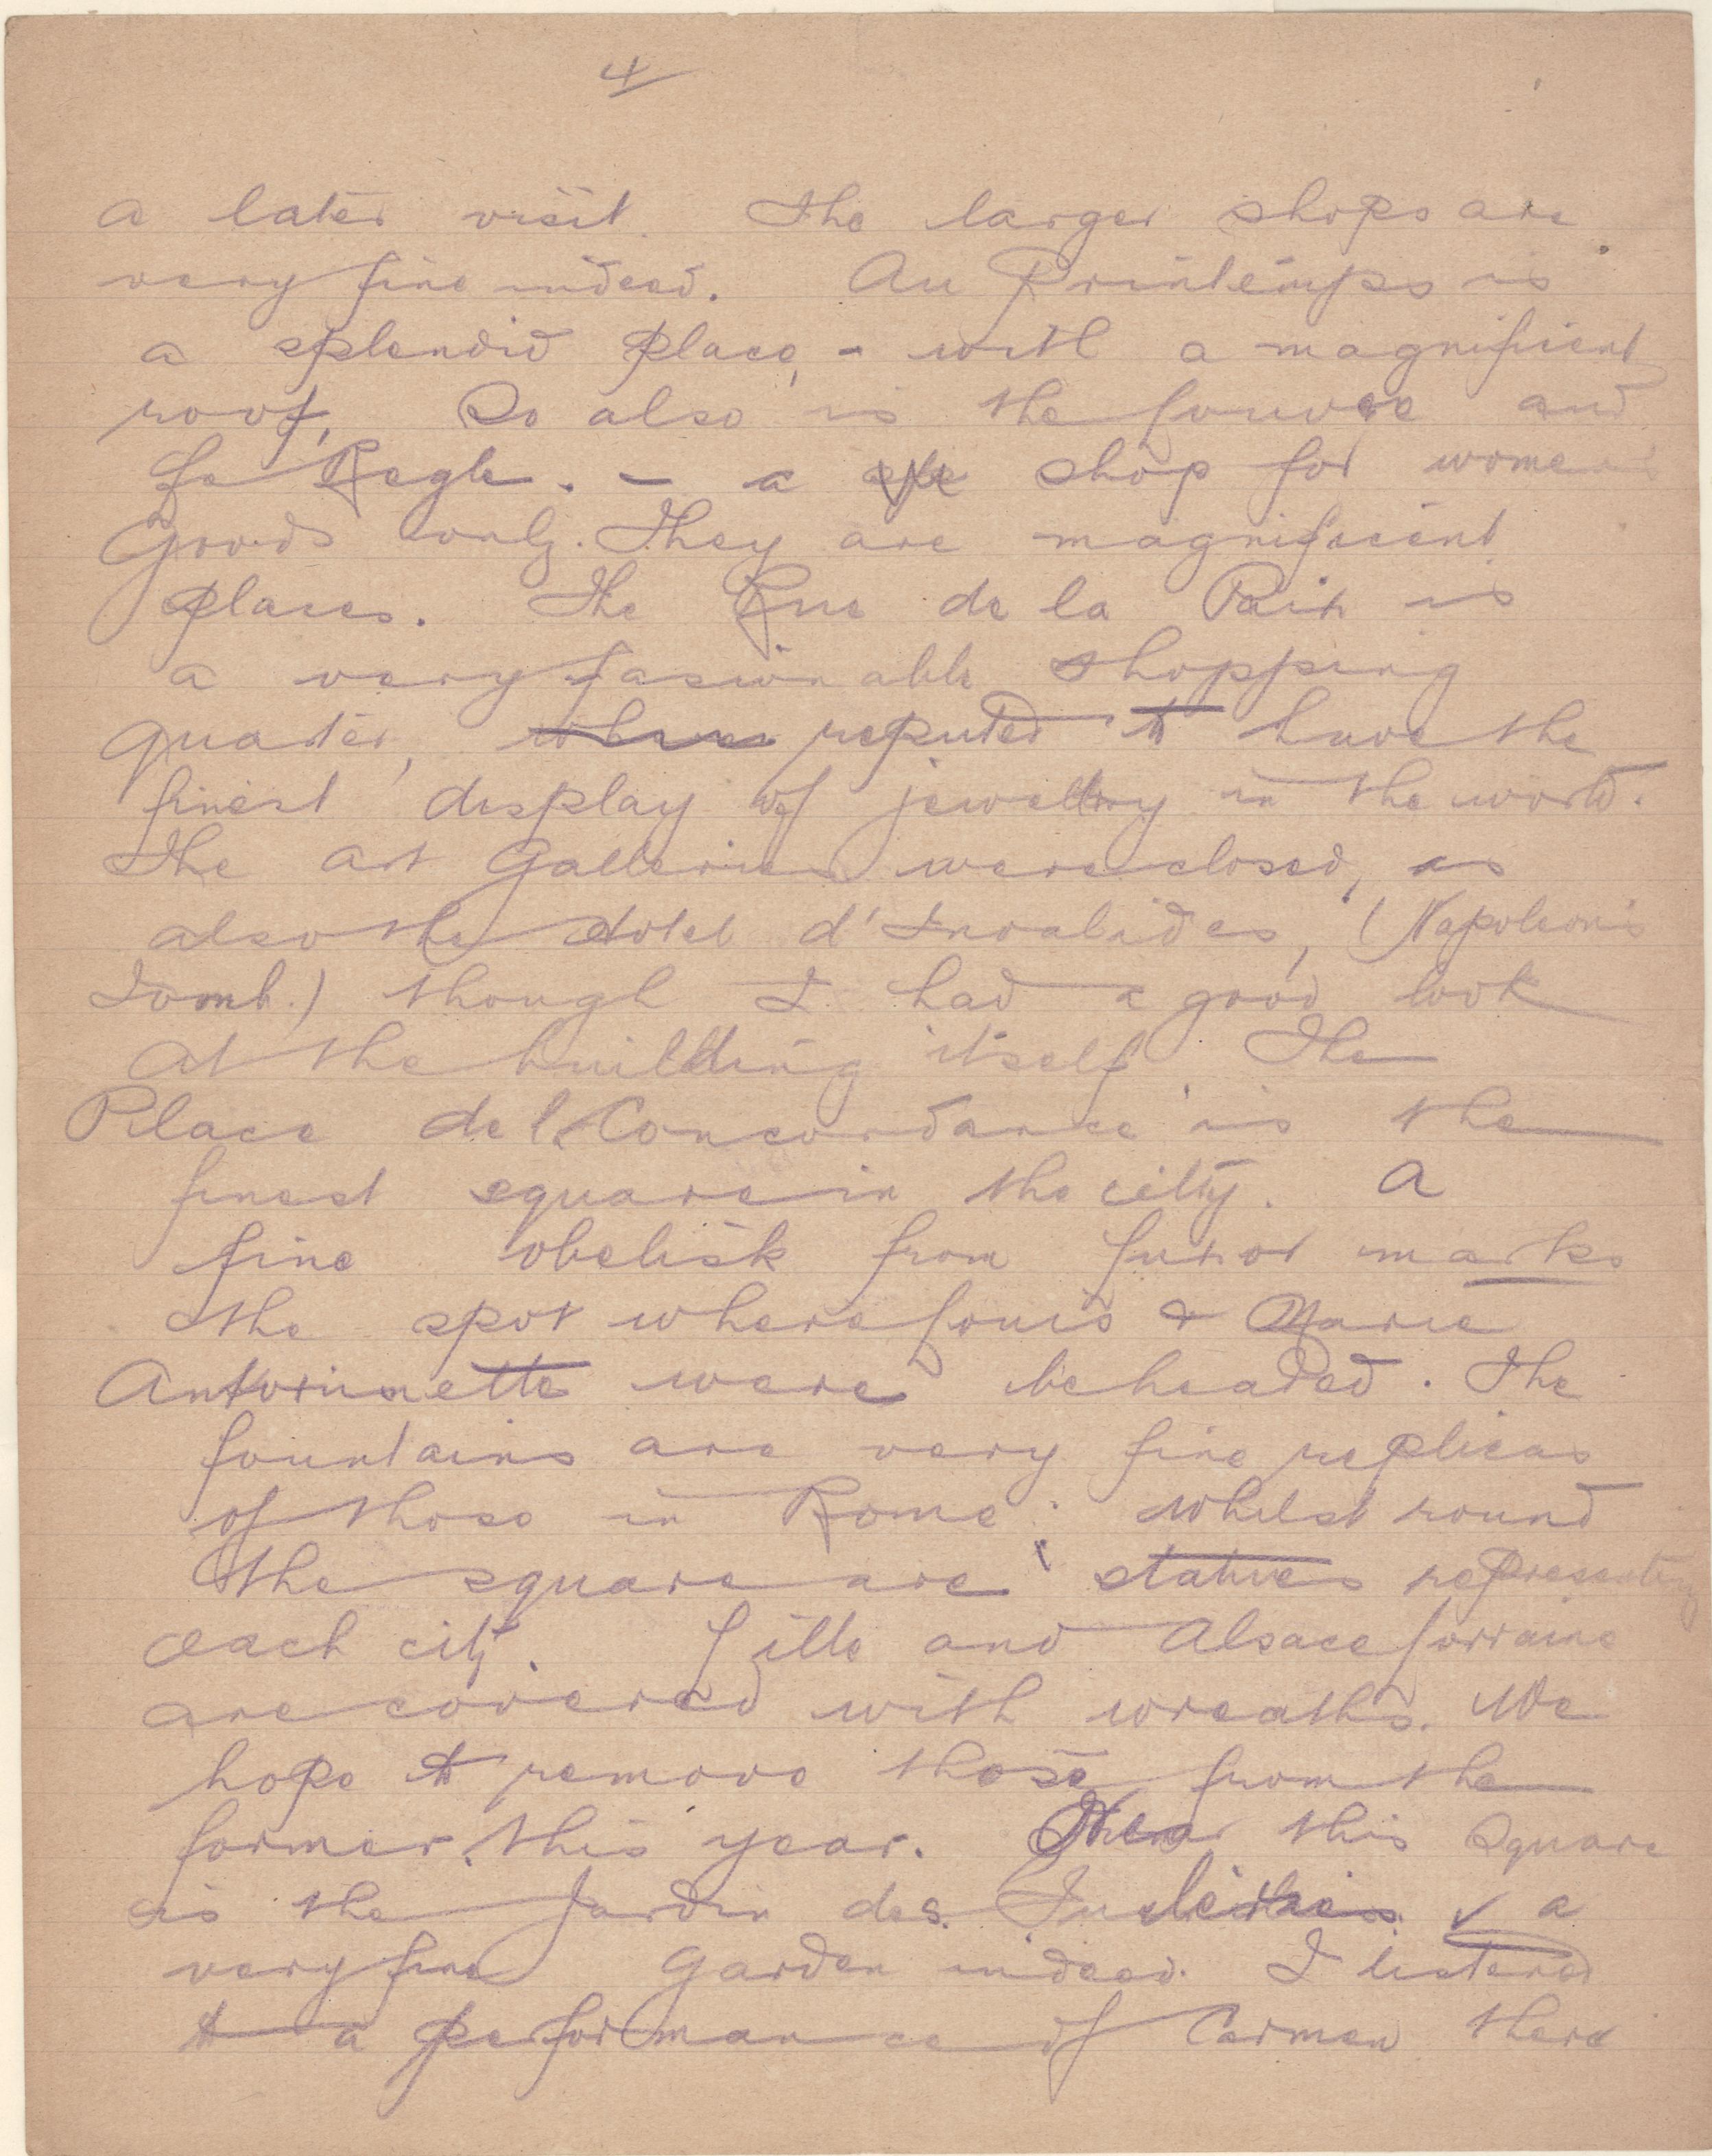 4
a later visit. The larger shops are
very fine indeed. Au Printemps is
a splendid place, - with a magnificent
roof. So also is the Louvre and
La Regle. - a shop for women's
Goods only. They are magnificent
places. The Rue de la Paix is
a very fasionable shopping
quarter, reputed to have the
finest display of jewellry in the world.
The Art Galleries were closed, as
also the Hotel d'Invalides, (Napoleon's
Tomb.) though I had a good look
at the building itself. The
Place de l Concordance is the
finest square in the city. A
fine obelisk from Luxor marks
the spot where Louis & Marie
Antoinette were beheaded. The
fountains are very fine replicas
of those in Rome: whilst round
the square are statues representing
each city. Lille and Alsace Lorraine
are covered with wreaths. We
hope to remove those from the
former this year. Near this Square
is the Jardin des Tuileries a
very fine Garden indeed. I listened
to a performance of Carmen there